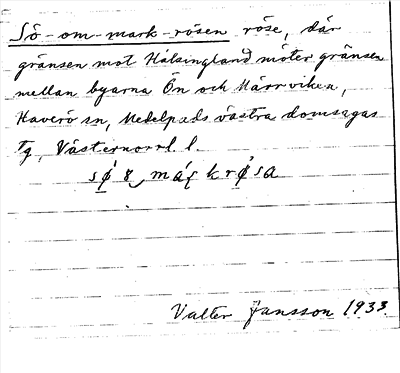 Sö-om-mark-rösen röse, där
gränsen mot Hälsingland möter gränsen
mellan byarna Ön och Härrviken,
Haverö sn, Medelpads västra domsagas
tg, Västernorrl. l.
Valter Jansson 1933.